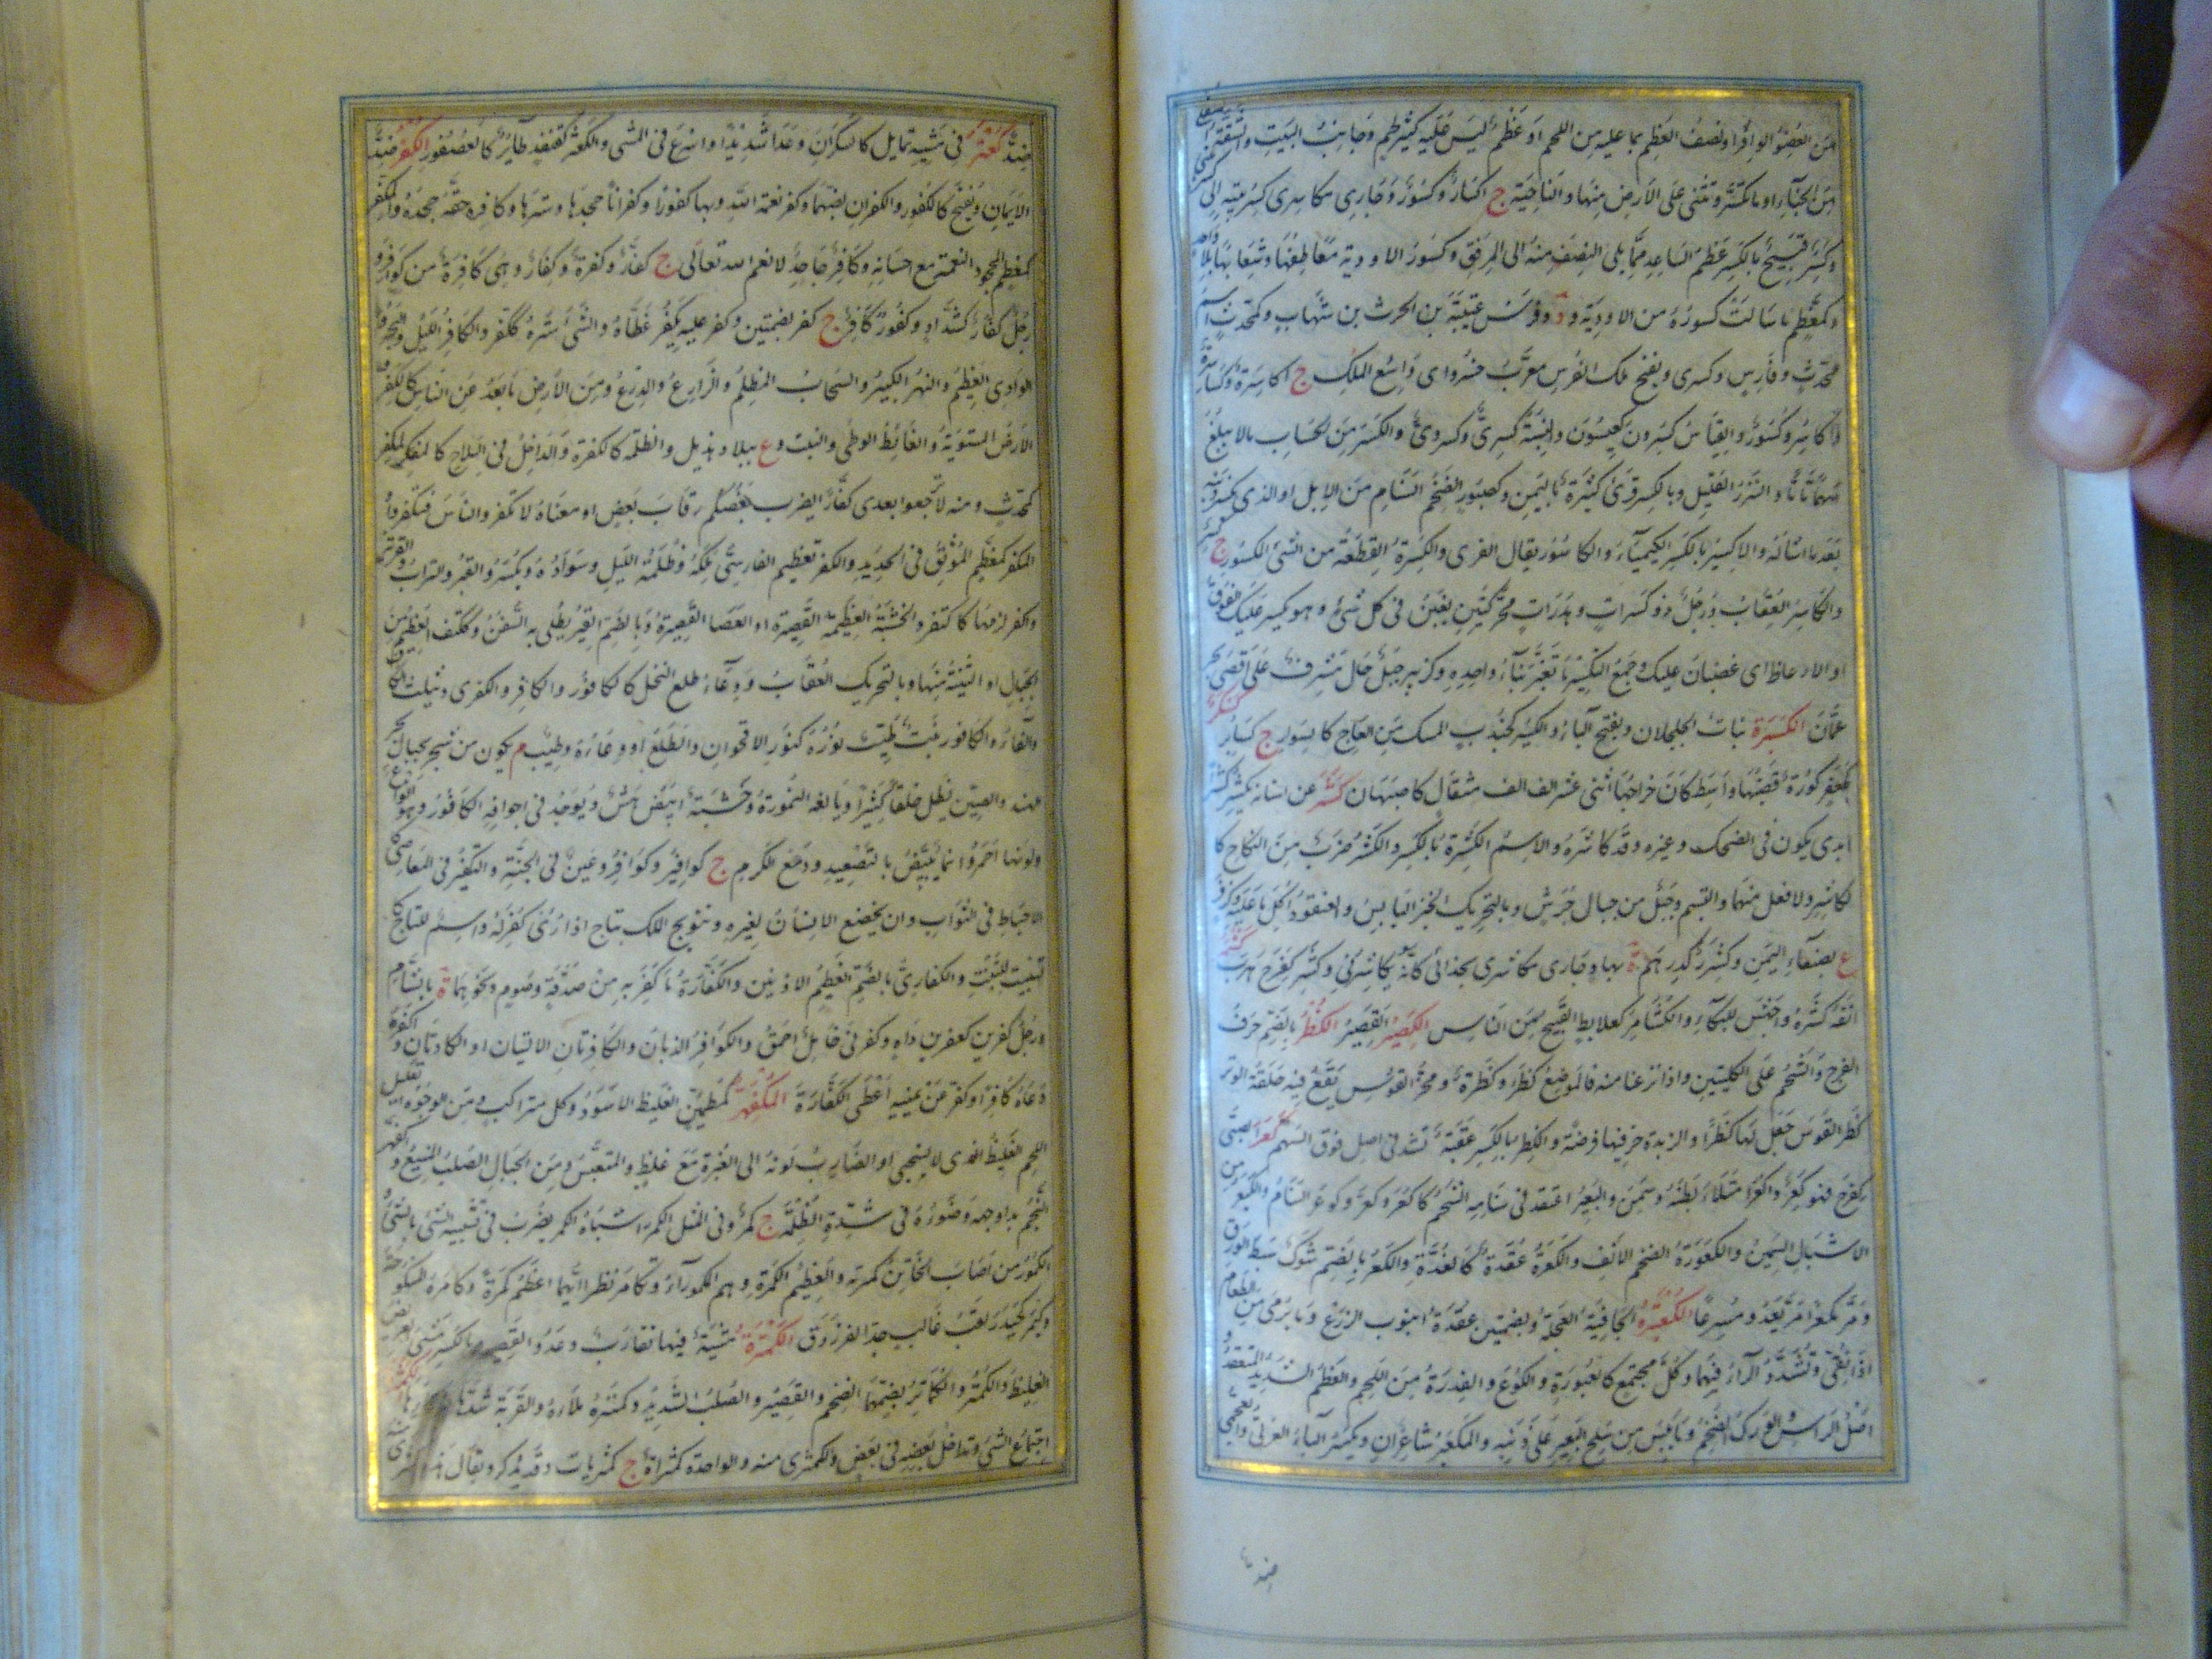 من العضو الوافر او نصف العظم بما عليه من اللحم او عظم ليس عليه كثير لحم وجانب البيت والشقة
من الخباء او ما تكسر وتثنى على الارض منها والناحية ج اكسار وكسور وجاري مكاسري كسر بيته الى
وكسر قبيح بالكسر عظم الساعد مما يلى النصف منه الى المرفق وكسور الاودية معاطفها وشعابها بلا
وكمعظم ما سالت كسوره من الاودية و د وفرس عتيبة بن الحرث بن شهاب وكمحدث اسم
محدث وفارس وكسرى ويفتح ملك الفرس معرب خسرو اى واسع الملك ج اكاسرة وكساسرة
واكاسر وكسور والقياس كسرون كعيسون والنسبة كسرى وكسروى والكسر من الحساب مالا يبلغ
سهما تاما والنزر القليل وبالكسر قرى كثيرة باليمن وكصبور الضخم السنام من الابل او الذى يكسر ذنبه
بعدما اشاله والاكسير بالكسر الكيمياء والكاسور بقال القرى والكسرة القطعة من الشئ المكسور ج كسر
والكاسر العقاب ورجل ذو كسرات وهدرات محركتين يغبن فى كل شئ وهو يكسر عليك الفوق
او الارعاظ اى غضبان عليك وجمع التكسير ما تغير بناء واحده وكزبير جبل عال مشرف على اقصى بحر
عمان الكسبرة نبات الجلجلان وبفتح الباء والكسبر كجندب المسك من العاج كالسوار ج كسابر كسكر
كجعفر كورة قصبتها واسط كان خراجها اثنى عشر الف الف مثقال كاصبهان كشر عن اسنانه يكشر كشرا
ابدى يكون فى الضحك وغيره وقد كاشره والاسم الكشرة بالكسر والكشر ضرب من النكاح كا
لكاشر ولا فعل منهما والتبسم وجبل من جبال جرش وبالتحريك الخبز اليابس والعنقود اكل ما عليه وكزفر
ع بصنعاء اليمن وكشرر كدرهم ة بها وجارى مكاشرى بحذائى كانه يكاشرنى وكشر كفرح هرب
انفه كشره واجتش للبكاء والكشامر كعلابط القبيح من الناس الكصير القصير الكظر بالضم حرف
الفرج والشحم على الكليتين واذا نزعنا منه فالموضع كظر وكظرة ومحز القوس يقع فيه حلقة الوتر
كظر القوس جعل لها كظرا والزندة حز فيها فرضة والكظر بالكسر عقبة تشد فى اصل فوق السهم كعر الصبى
كفرح فهو كعر واكعر امتلا بطنه وسمن والبعير اعتقد فى سنامه الشحم كاكعر وكعر وكوعر السنام والكيعر من
الاشبال السمين والكعورة الضخم الانف والكعرة عقدة كالغدة والكعر بالضم شوك سبط الورق
ومر مكعرا مر يعدو مسرعا الكعبرة الجافية العجلة وبضمتين عقدة انبوب الزرع وما يرمى من الطعام
اذا نقى وتشدد الراء فيهما وكل مجتمع كالعبورة والكوع والفدرة من اللحم والعظم الشديد المتعقد
اصل الراس والورك الضخم وما يبس من سلح البعير على ذنبه والمكعبر شاعران وبكسر الباء العربى والعجمى
ضد
ضد كعتر فى مشيه تمايل كالسكران وعدا شديدا واسرع فى المشى والكعتر كقنفذ طائر كالعصفور الكفر ضد
الايمان ويفتح كالكفور والكفران بضمهما وكفر نعمة الله وبها كفورا وكفرانا جحدها وسترها وكافره حقه جحده والمكفر
كمعظم المجحود النعمة مع احسانه وكافر جاحد لانعم الله تعالى ج كفار وكفرة وكفار وهى كافرة من كوافر و
رجل كفار كشداد وكفور كافر ج كفر بضمتين وكفر عليه يكفر غطاه والشئ ستره ككفر والكافر الليل والبحر و
الوادى العظيم والنهر الكبير والسحاب المظلم والزارع والدرع ومن الارض ما بعد عن الناس كالكفر و
الارض المستوية والغائط الوطئ والنبت و ع ببلاد هذيل والظلمة كالكفرة والداخل فى السلاح كالمكفر
كمحدث ومنه لا ترجعوا بعدى كفارا يضرب بعضكم رقاب بعض او معناه لا تكفروا الناس فتكفروا
المكفر كمعظم الموثق فى الحديد والكفر تعظيم الفارسى ملكه وظلمة الليل وسواده ويكسر والقبر والتراب والقرية
واكفر لزمها كاكتفر والخشبة الغليظة القصيرة او العصا القصيرة وبالضم القير يطلى به السفن وككتف العظيم من
الجبال او الثنية منها وبالتحريك العقاب ووعاء طلع النخل كالكافور والكافر والكفرى وتثلث الكاف
والفاء والكافور نبت طيب نوره كنور الاقحوان والطلع او وعاءه وطيب م يكون من شجر بجبال بحر
الهند والصين يظل خلقا كثيرا ويالفه النمورة وخشبه ابيض هش ويوجد فى اجوافه الكافور وهو انواع
ولونها احمر وانما يبيض بالتصعيد ودمع الكرم ج كوافير وكوافر وعين فى الجنة والتكفير فى المعاصى
كالاحباط فى الثواب وان يخضع الانسان لغيره وتتويج الملك بتاج اذا رئى كفر له واسم للتاج كا
لتنبيت للنبت والكفارى بالضم العظيم الاذنين والكفارة ما كفر به من صدقة وصوم ونحوهما ة بالشام
ورجل كفرين كعفرين داه وكفرنى خامل احمق والكوافر الدنان والكافرتان الاليتان او الكاذتان واكفره
دعاه كافرا وكفر عن يمينه اعطى الكفارة المكفهر كمطمئن الغليظ الاسود وكل متراكب ومن الوجوه القليل
اللحم الغليظ الذى لا يستحيى او الضارب لونه الى الغبرة مع غلظ والمتعبس ومن الجبال الصلب المنيع واكفهر
النجم بدا وجهه وضوءه فى شدة الظلمة ج كمر وفى المثل الكمر اشباه الكمر يضرب فى تشبيه الشئ بالشئ و
المكمور من اصاب الخاتن كمرته والعظيم الكمرة وهم المكموراء وتكامرا نظرا ايهما اعظم كمرة وكامره
وكيمر كحيدر لقب غالب جد الفرزدق الكمترة مشية فيها تقارب وعدو القصير وبالكسر مشى
الغليظ والكمتر والكماتر بضمهما الضخم والقصير والصلب الشديد وكمتره ملاه والقربة شدها
اجتماع الشئ وتداخل بعضه فى بعض والكمثرى منه والواحدة كمثراة ج كمثريات وقد يذكر ويقال